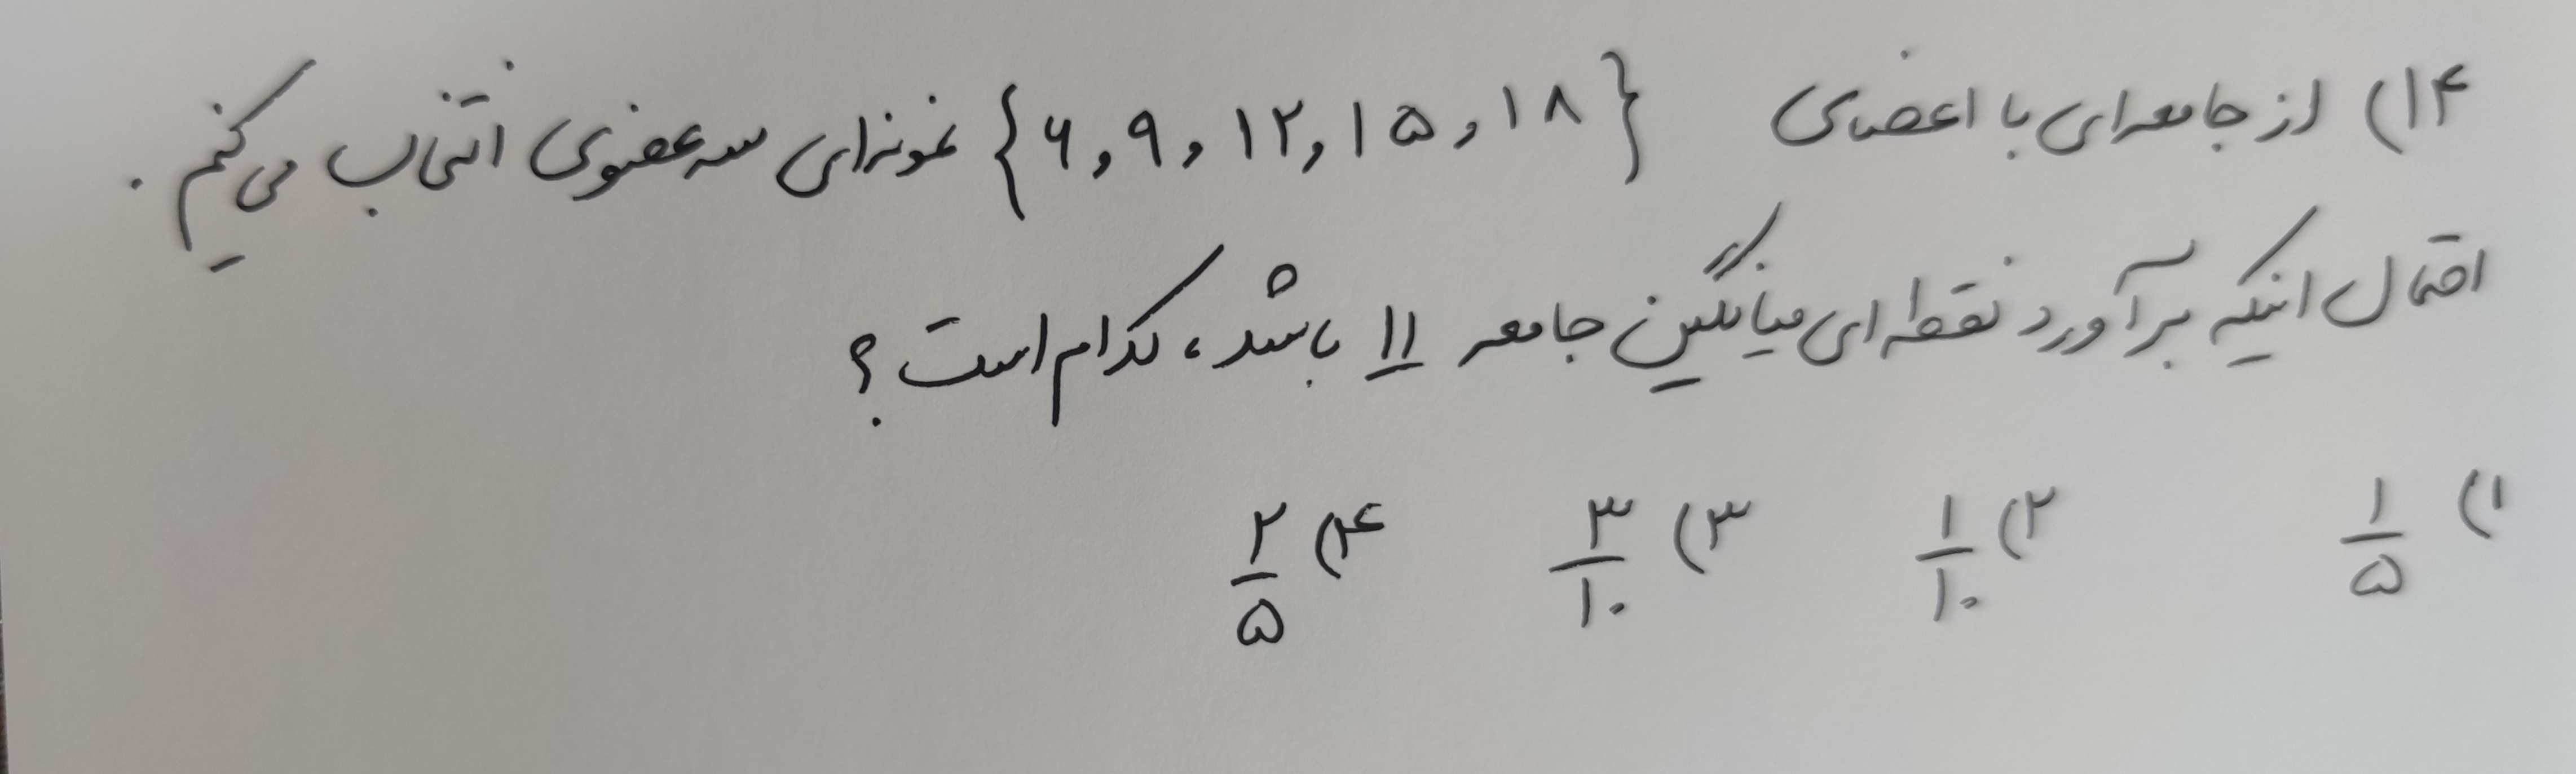 ۱۴) از جامعه‌ای با اعضای {۶,۹,۱۲,۱۵,۱۸} نمونه‌ای سه عضوی انتخاب می‌کنیم.
احتمال اینکه برآورد نقطه‌ای میانگین جامعه ۱۱ باشد، کدام است؟
۱) ۱/۵ ۲) ۱/۱۰ ۳) ۳/۱۰ ۴) ۲/۵